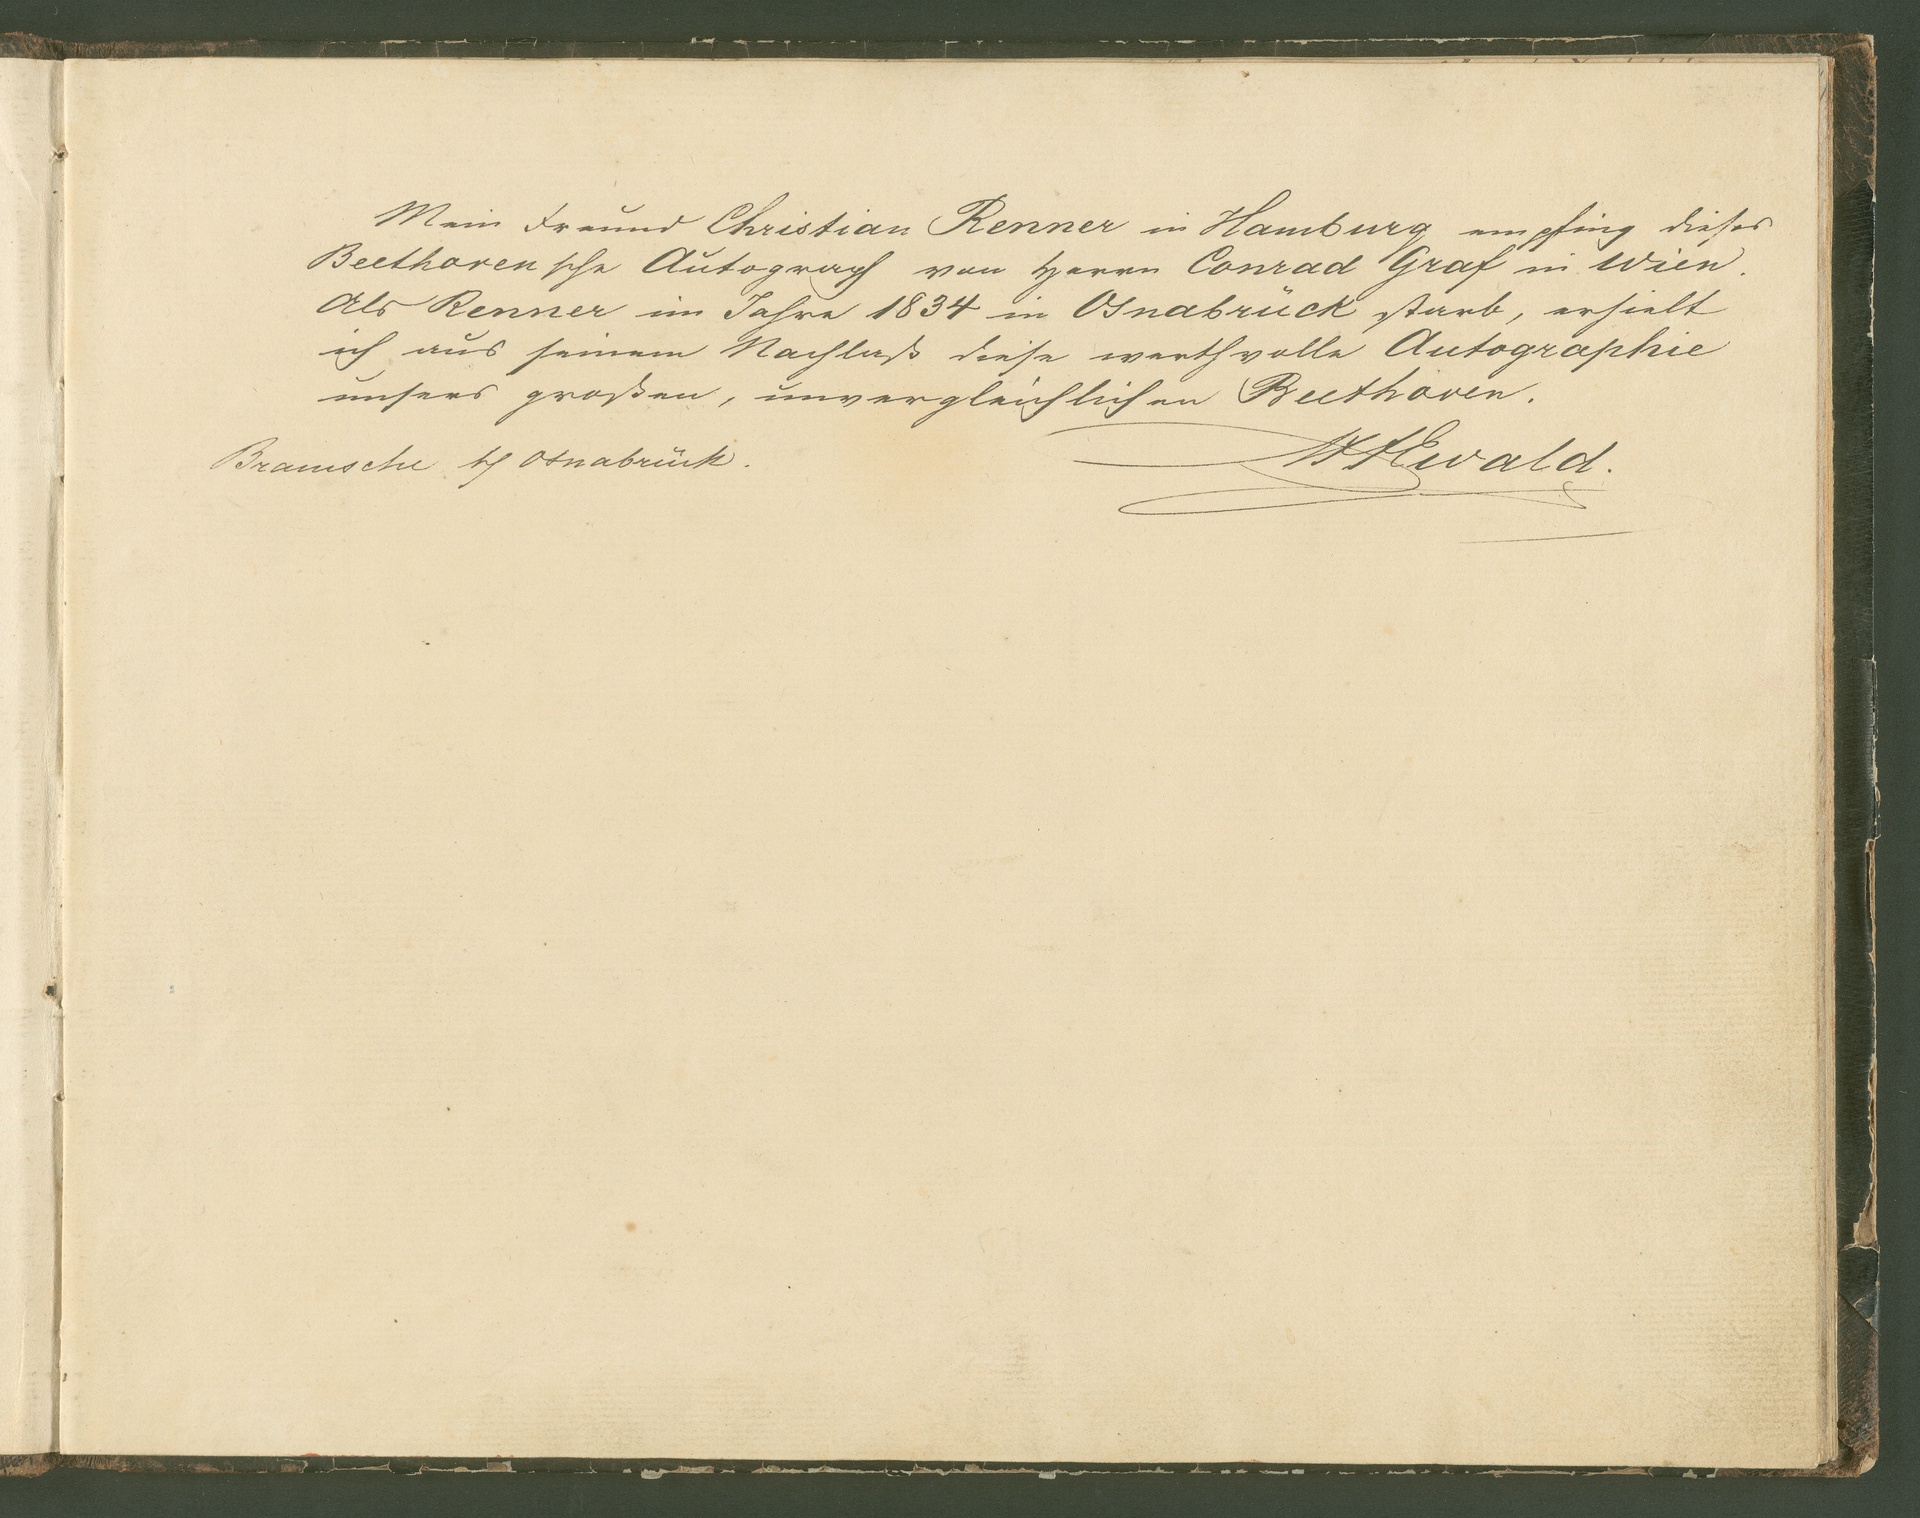 Mein Freund Christian Renner in Hamburg empfing dieses
Beethovensche Autograph von Herrn Conrad Graf in Wien.
Als Renner im Jahre 1834 in Osnabrück starb, erhielt
ich aus seinem Nachlaß diese werthvolle Autographie
unsers großen, unvergleichlichen Beethoven.
Bramsche b/ Osnabrück.
Ewald.